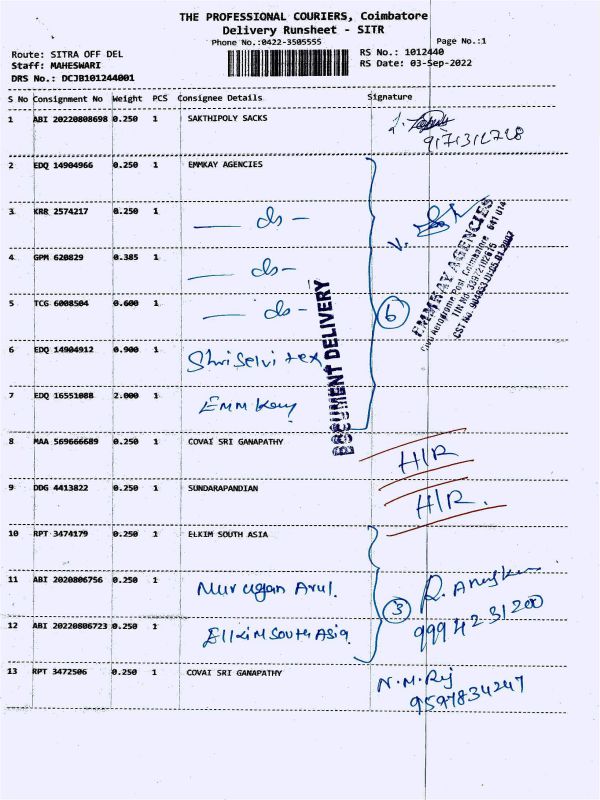 THE PROFESSIONAL COURIERS, Coimbatore
Delivery Runsheet - SITR
Phone No.:0422-3505555 Page No.:1
Route: SITRA OFF DEL RS No.: 1012440
Staff: MAHESWARI RS Date: 03-Sep-2022
DRS No.: DCJB101244001
S No Consignment No Weight PCS Consignee Details Signature
1 ABI 20220808698 0.250 1 SAKTHIPOLY SACKS
9171312728
2 EDQ 14904966 0.250 1 EMMKAY AGENCIES
3 KRR 2574217 0.250 1 — do —
4 GPM 620829 0.385 1 — do —
5 TCG 6008504 0.600 1 — do —
6
EMMKAY AGENCIES
Civil Aerodrome Post, Coimbatore 641 014
DOCUMENT DELIVERY
6 EDQ 14904912 0.900 1 Shri Selvi tex
7 EDQ 16551088 2.000 1 EMM Kay
8 MAA 569666689 0.250 1 COVAI SRI GANAPATHY H/R
9 DDG 4413822 0.250 1 SUNDARAPANDIAN H/R.
10 RPT 3474179 0.250 1 ELKIM SOUTH ASIA
11 ABI 2020806756 0.250 1 Murugan Arul.
3
12 ABI 20220806723 0.250 1 Ellkim South Asia 9994231200
13 RPT 3472506 0.250 1 COVAI SRI GANAPATHY N.M.Raj
9597834247